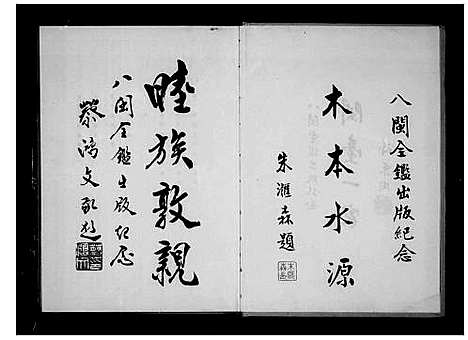 八閩全鑑出版紀念
木本水源
朱滙森題
睦族敦親
八闽全鑑出版纪念
蔡鴻文敬題